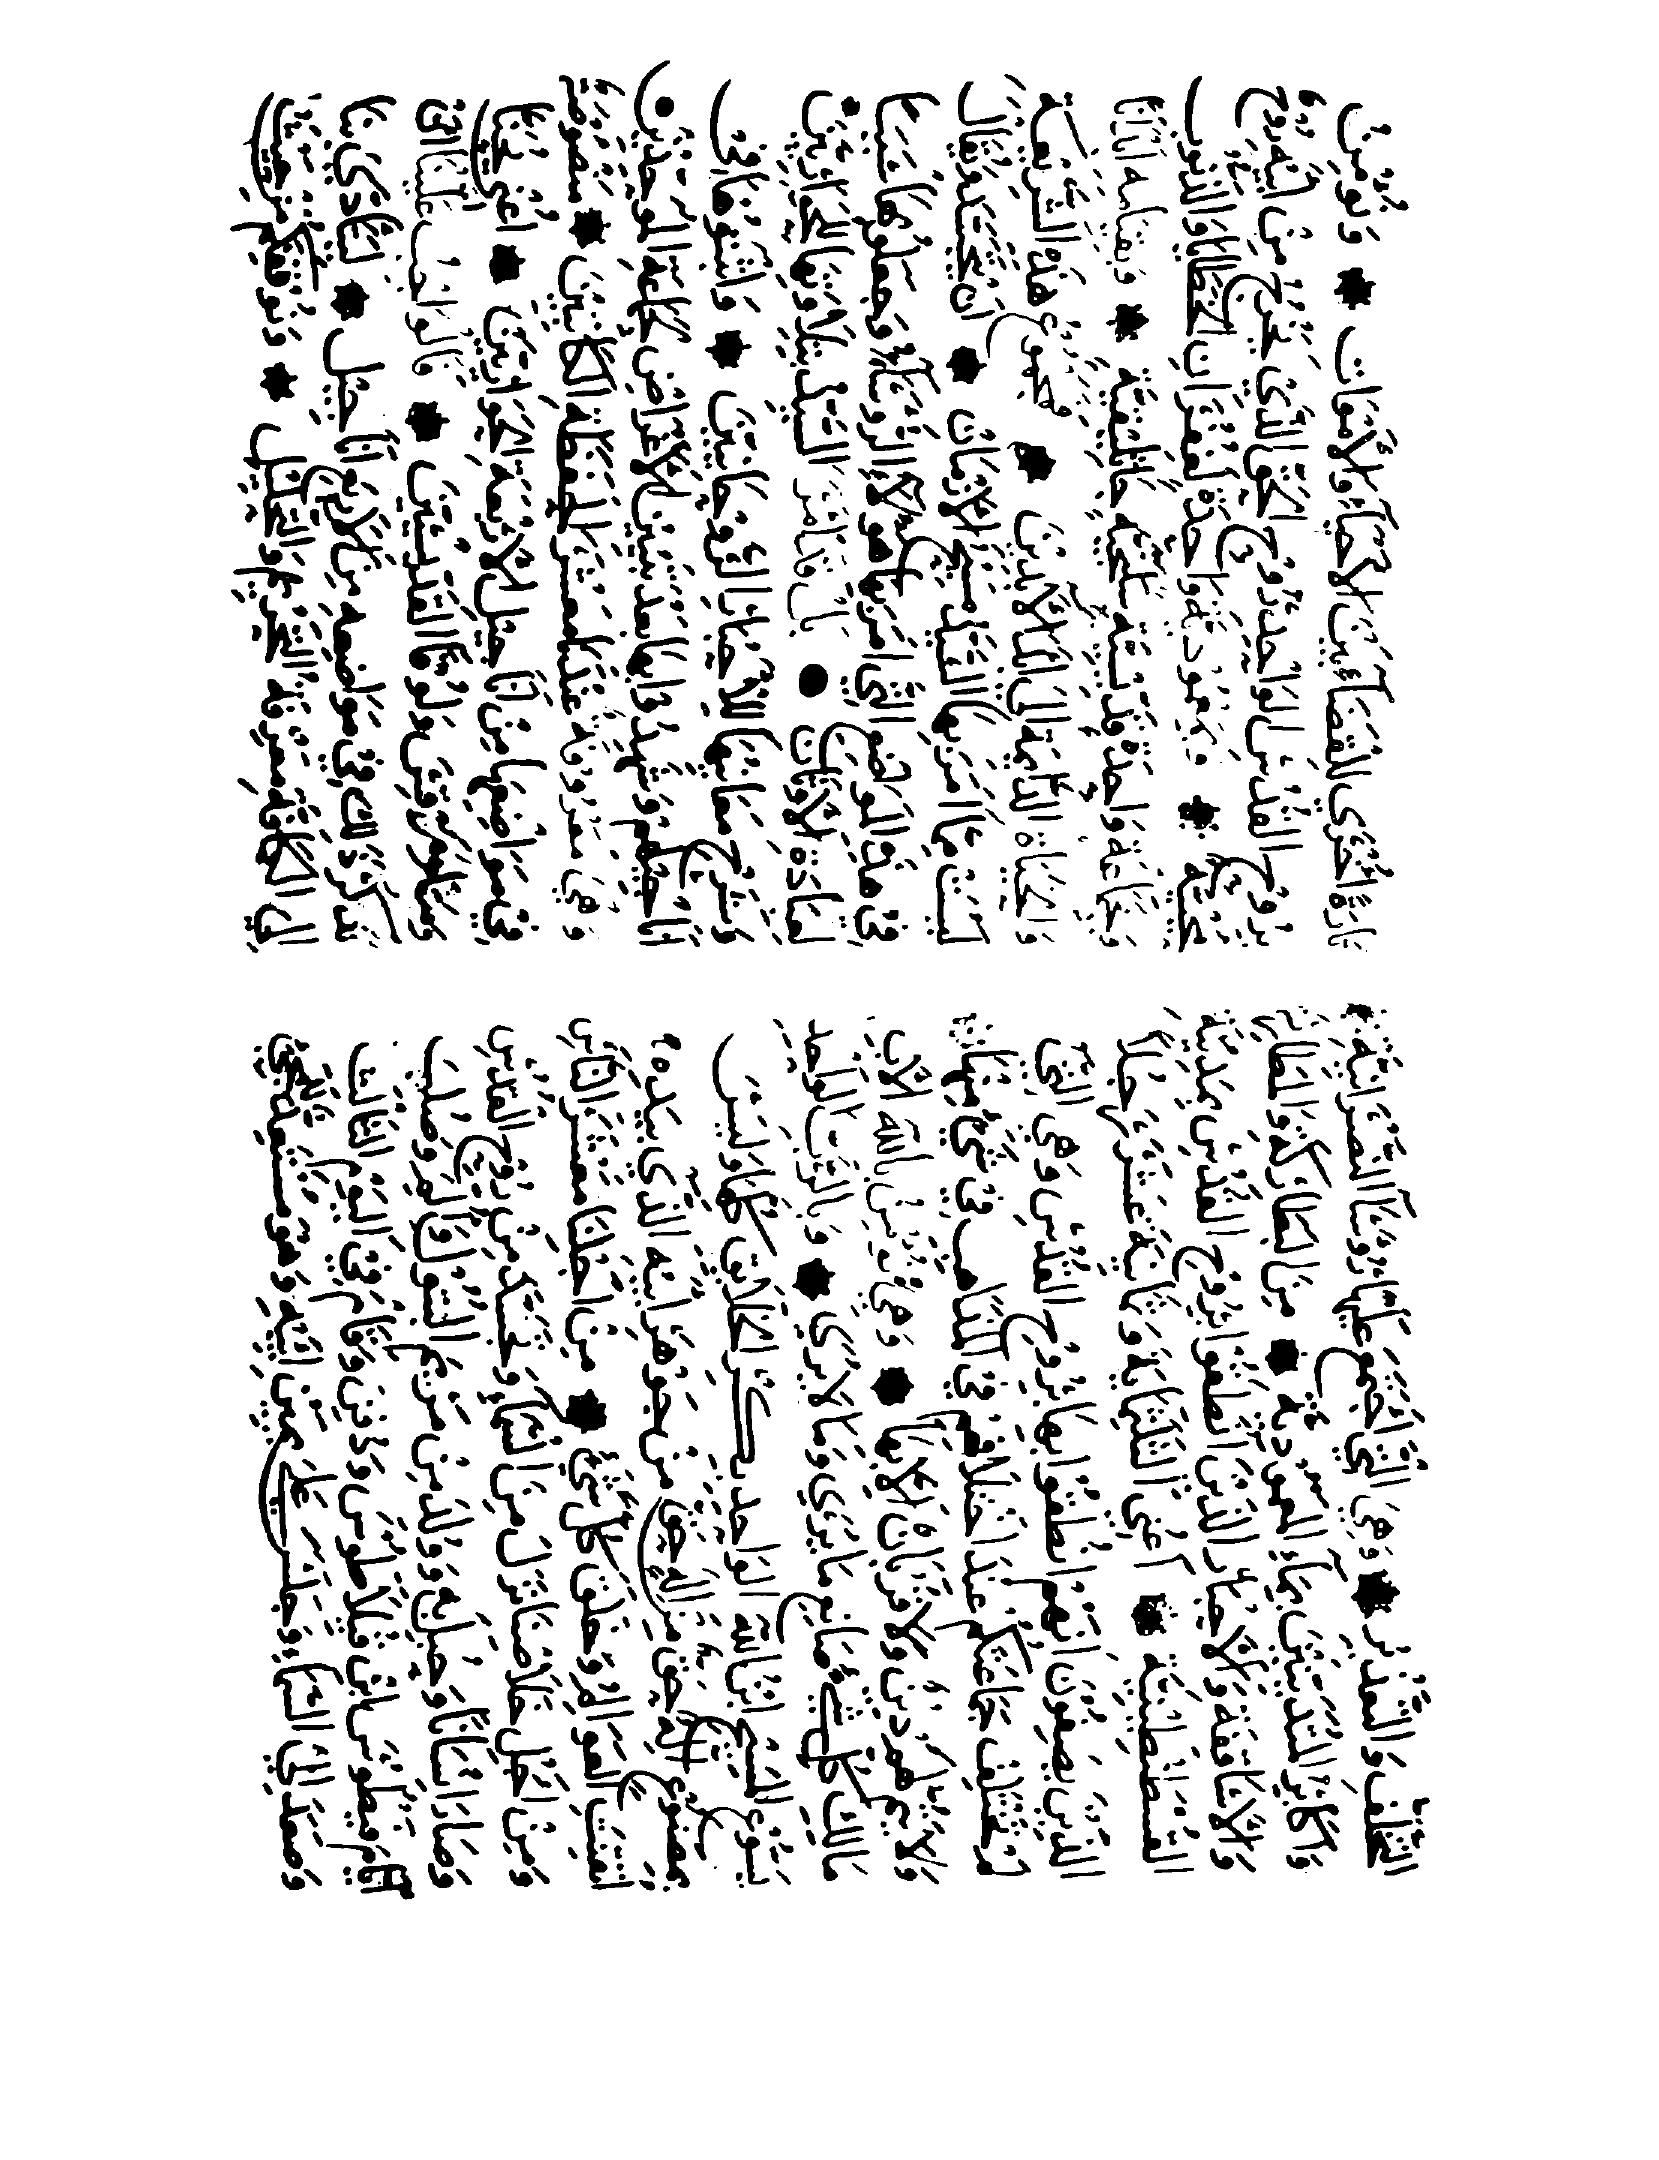 الخلف والتقدير * وهي التي اجمع عليها روسآ النصرانية
واكابر المتدينين بمآء المعمودية * من البطاركة والمطارنة
والاساقفة والاحبار الذين انطقوا بروح القدس بمدينة
القسطنطينية * اعني الثلثماية وثمانية عشر رجلا
الذين يصفون انهم نطقوا بها بروح القدس وهي التي
لم تختلف جماعتكم عند اختلافهم في المذاهب في شيء منها
ولا يتم لهم دين ولا قربان الا بها * وهي نومن بالله الاب
مالك كل شيء صانع ما يرى وما لا يرى * وبالرب الواحد
يسوع المسيح ابن الله الواحد بكر الخلايق كلها وليس
بمصنوع اله حق من اله حق من جوهر ابيه الذي بيده
اتقنت العوالم وخلق كل شيء * من اجلنا معشر الناس
ومن اجل خلاصنا نزل من السماء وتجسد من روح القدس
وصار انسانا وحبل به وولد من مريم البتول والم وصلب
ايام فيطوس ابن فيلاطوس ودفن وقام في اليوم الثالث
وصعد الى السماء وجلس على يمين ابيه وهو مستعد للمجي
تارة اخرى للقضاء بين الاحياء والاموات * ونومن
بروح القدس الواحد روح الحق الذي يخرج من ابيه روح
محييه * وبمعمودية واحدة لغفران الخطايا والذنوب
وبجماعة واحدة قديسة سليحية جاثليقية * وبقيامة ابداننا
والحياة الدائمة الى ابد الابدين * فمجموع هذه الشريعة
ليست مما امر بها السيد مسيح الازمان * ان ويقال
في هذه المواضع التي امر بها هولاء الروساء وجعلوها شبيها
لعبادة الاوثان * بل قد امر السيد بتلاوتها الحواريين
وبشرح معانيها للاحبار الروحانيين * في
بعد سنين لاعراض جماعة الموحدين *
وهي معروفة عندنا معشر الحفظة الكاتبين * منصوصة
في مواضعها من اناجيل الاربعة الحواريين * اعني يحنا
ومتا ومرقس ولوقا القديسين * قالوا
نذكر ذلك في مواضعه من الاربع اناجيل *
الى الكافة معرفة التحريم والتحليل * ونوقفكم من حيث